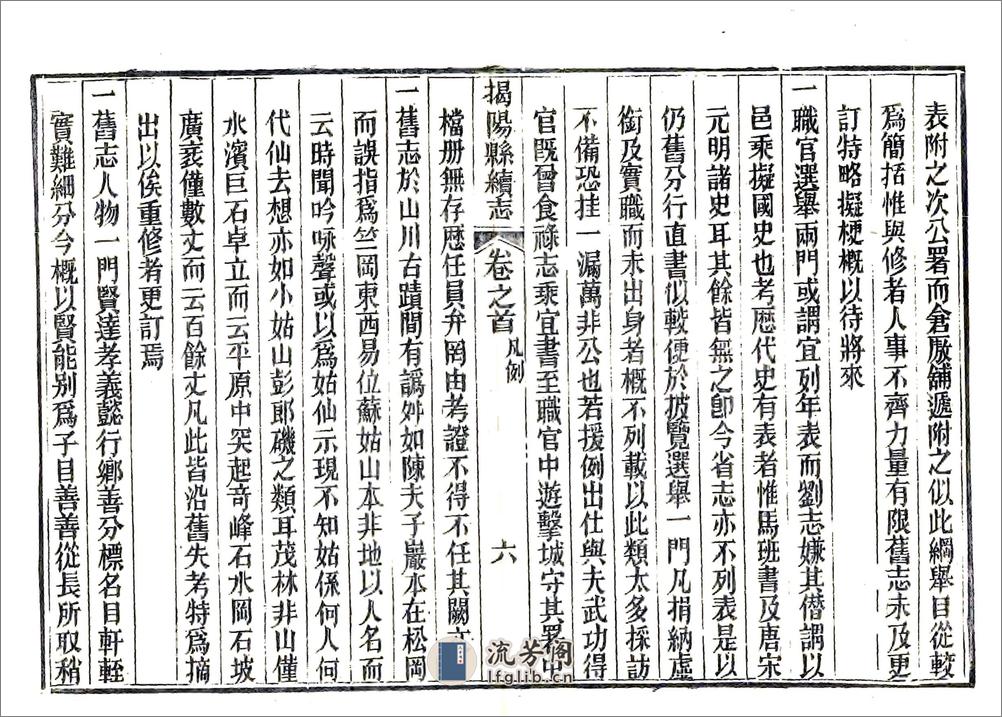 表附之次公署而倉厫舖遞附之似此綱舉目從較
爲簡括惟與修者人事不齊力量有限舊志未及更
訂特略擬梗概以待將來
一職官選舉兩門或謂宜列年表而劉志嫌其僭謂以
邑乘擬國史也考歷代史有表者惟馬班書及唐宋
元明諸史耳其餘皆無之卽今省志亦不列表是以
仍舊分行直書似較便於披覽選舉一門凡捐納虛
銜及實職而未出身者概不列載以此類太多採訪
不備恐挂一漏萬非公也若援例出仕與夫武功得
官旣曾食祿志乘宜書至職官中遊擊城守其署中
檔册無存歷任員弁罔由考證不得不任其闕文
揭陽縣續志 卷之首 凡例 六
一舊志於山川古蹟間有譌舛如陳夫子巖本在松岡
而誤指爲竺岡東西易位蘇姑山本非地以人名而
云時聞吟咏聲或以爲姑仙示現不知姑係何人何
代仙去想亦如小姑山彭郎磯之類耳茂林非山僅
水濱巨石卓立而云平原中突起奇峰石水岡石坡
廣袤僅數丈而云百餘丈凡此皆沿舊失考特爲摘
出以俟重修者更訂焉
一舊志人物一門賢達孝義懿行鄉善分標名目軒輊
實難細分今概以賢能別爲子目善善從長所取稍
流芳閣
lfglib.cn